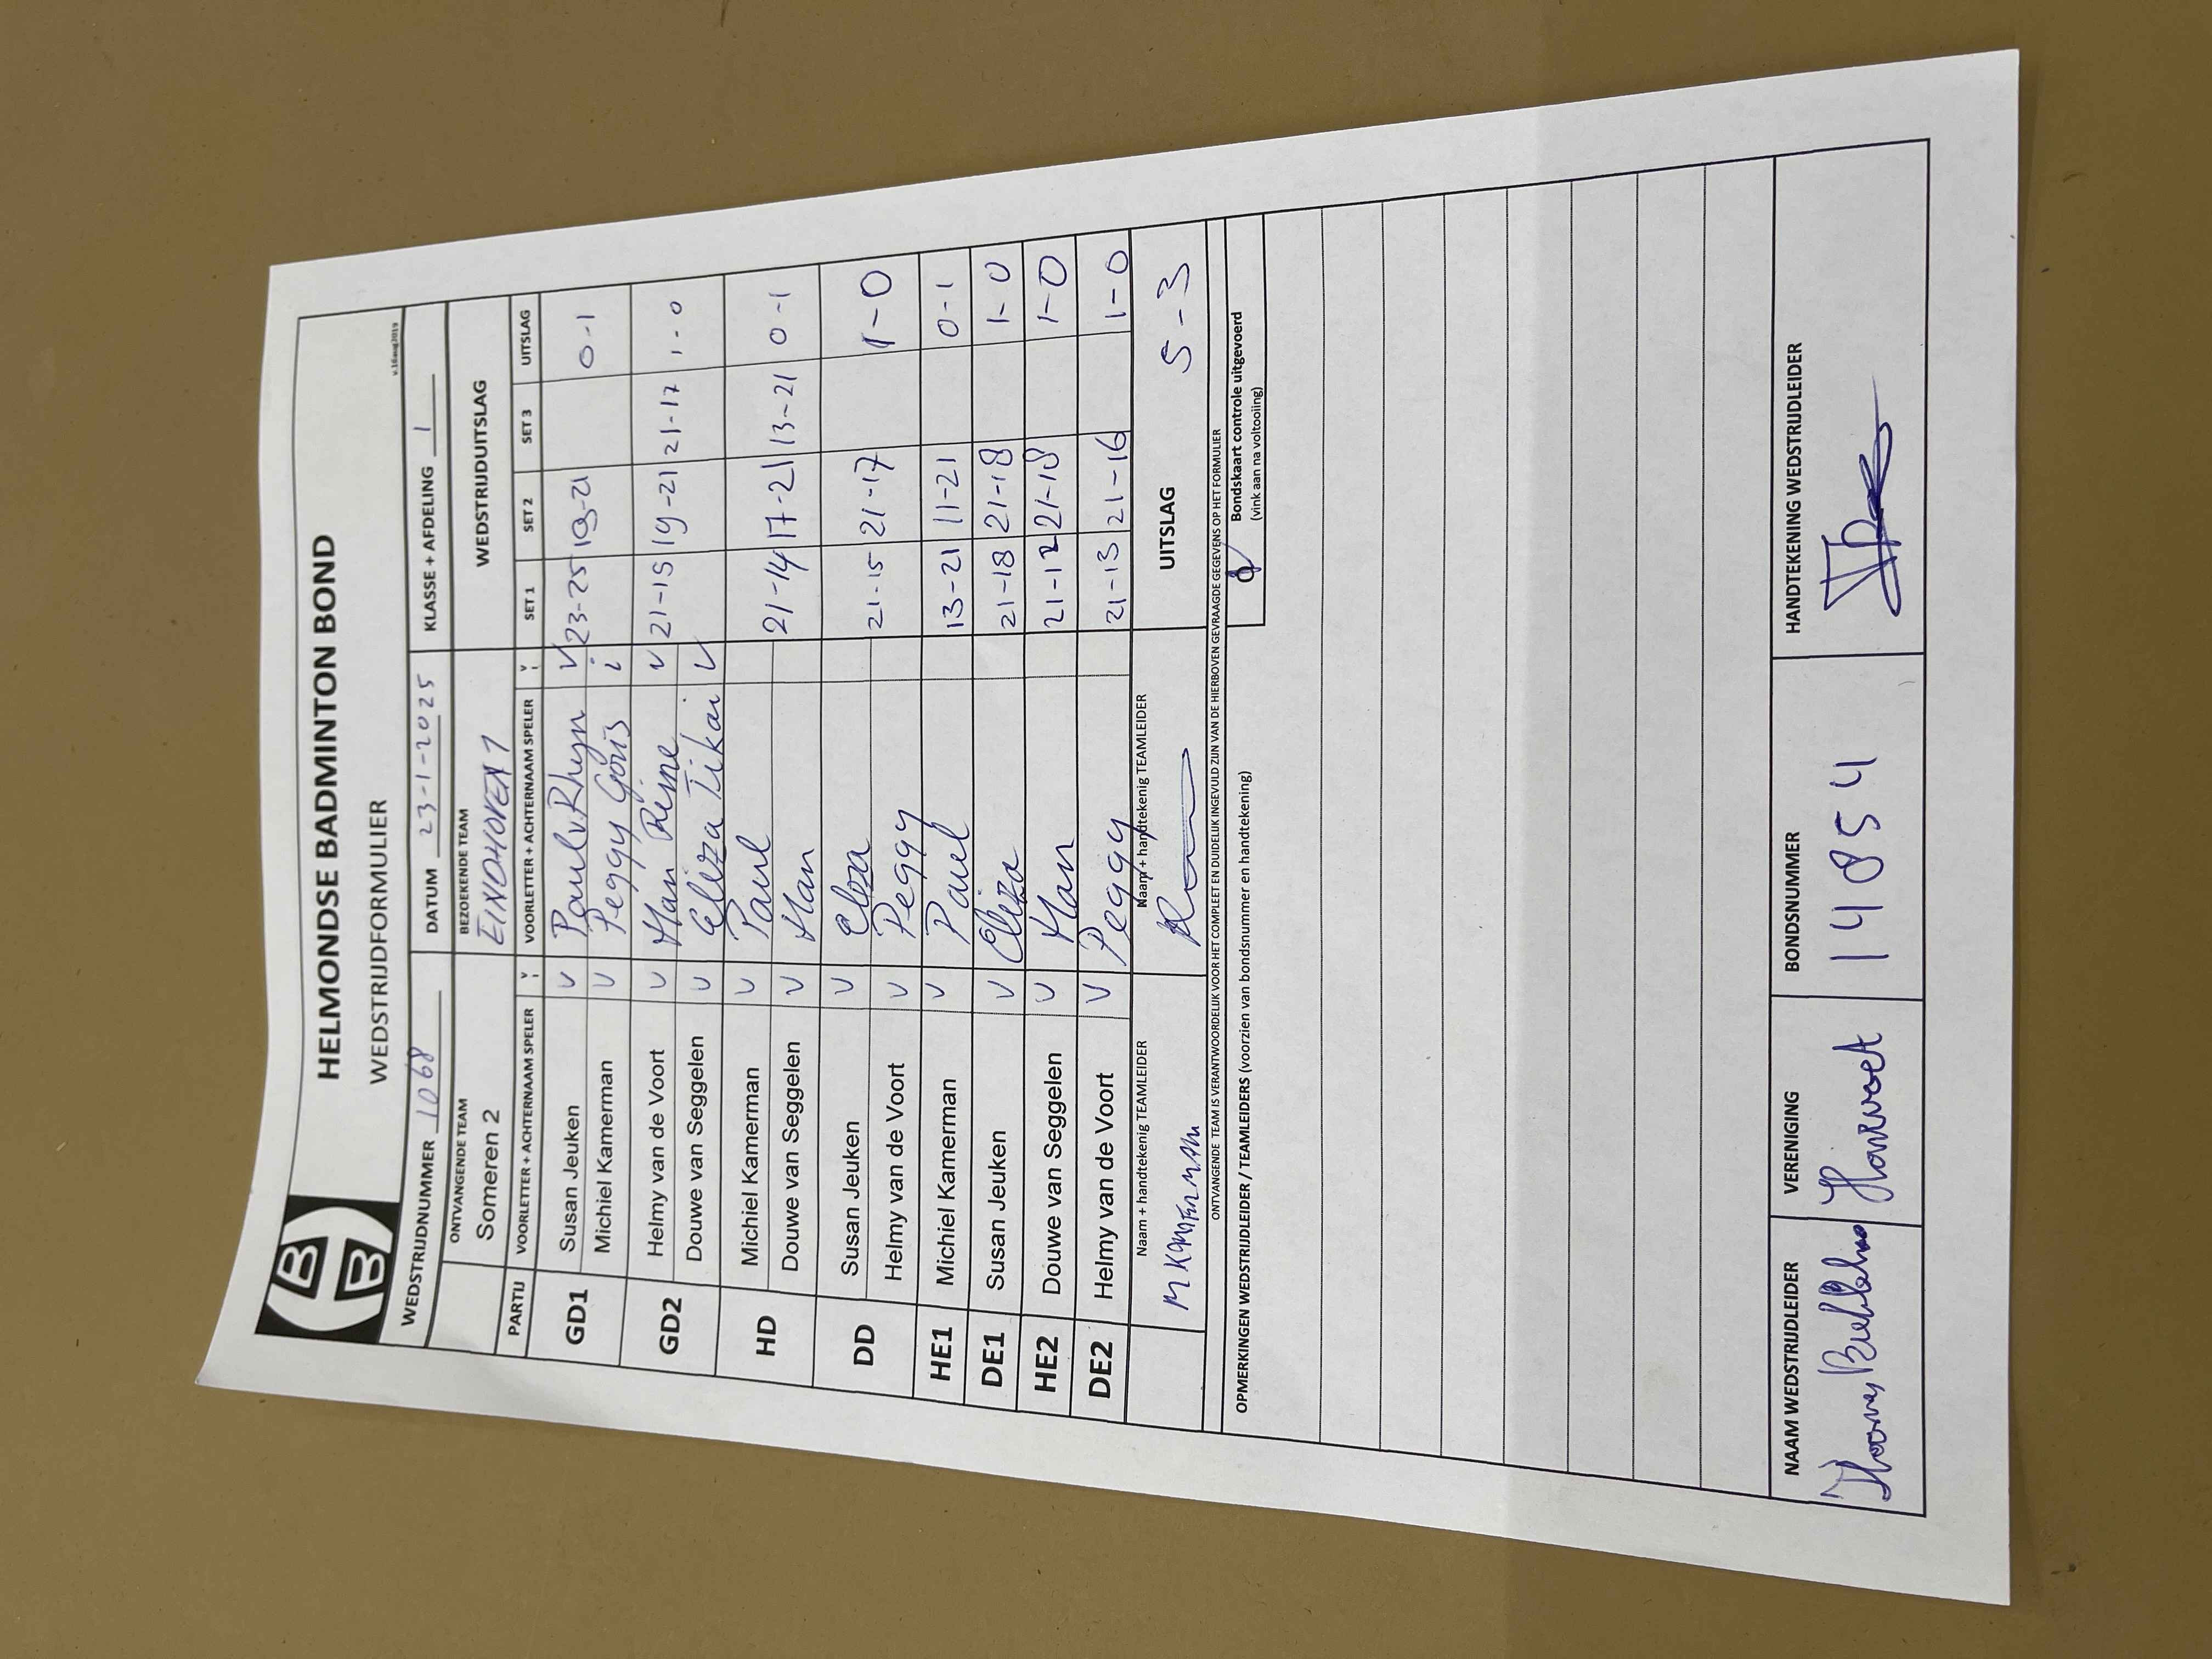 HBB
HELMONDSE BADMINTON BOND
WEDSTRIJDFORMULIER
v.16aug2019
WEDSTRIJDNUMMER 1068 DATUM 23-1-2025 KLASSE + AFDELING 1
ONTVANGENDE TEAM BEZOEKENDE TEAM WEDSTRIJDUITSLAG
Someren 2 EINDHOVEN 1
PARTIJ VOORLETTER + ACHTERNAAM SPELER V VOORLETTER + ACHTERNAAM SPELER V SET 1 SET 2 SET 3 UITSLAG
GD1 Susan Jeuken V Paul v Rhyn V 23-25 19-21 0-1
Michiel Kamerman V Peggy Goris i
GD2 Helmy van de Voort V Han V 21-15 19-21 21-17 1-0
Douwe van Seggelen V Elieza Tikai V
HD Michiel Kamerman V Paul 21-14 17-21 13-21 0-1
Douwe van Seggelen V Han
DD Susan Jeuken V 21-15 21-17 1-0
Helmy van de Voort V Peggy
HE1 Michiel Kamerman V Paul 13-21 11-21 0-1
DE1 Susan Jeuken V Elieza 21-18 21-18 1-0
HE2 Douwe van Seggelen V Han 21-12 21-18 1-0
DE2 Helmy van de Voort V Peggy 21-13 21-16 1-0
Naam + handtekenig TEAMLEIDER Naam + handtekenig TEAMLEIDER UITSLAG 5-3
M KAMERMAN
ONTVANGENDE TEAM IS VERANTWOORDELIJK VOOR HET COMPLEET EN DUIDELIJK INGEVULD ZIJN VAN DE HIERBOVEN GEVRAAGDE GEGEVENS OP HET FORMULIER
OPMERKINGEN WEDSTRIJDLEIDER / TEAMLEIDERS (voorzien van bondsnummer en handtekening) Bondskaart controle uitgevoerd
(vink aan na voltooiing)
NAAM WEDSTRIJDLEIDER VERENIGING BONDSNUMMER HANDTEKENING WEDSTRIJDLEIDER
14854